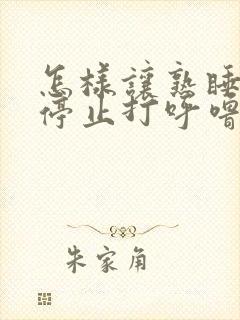 怎樣讓熟睡
停止打呼嚕
朱家角